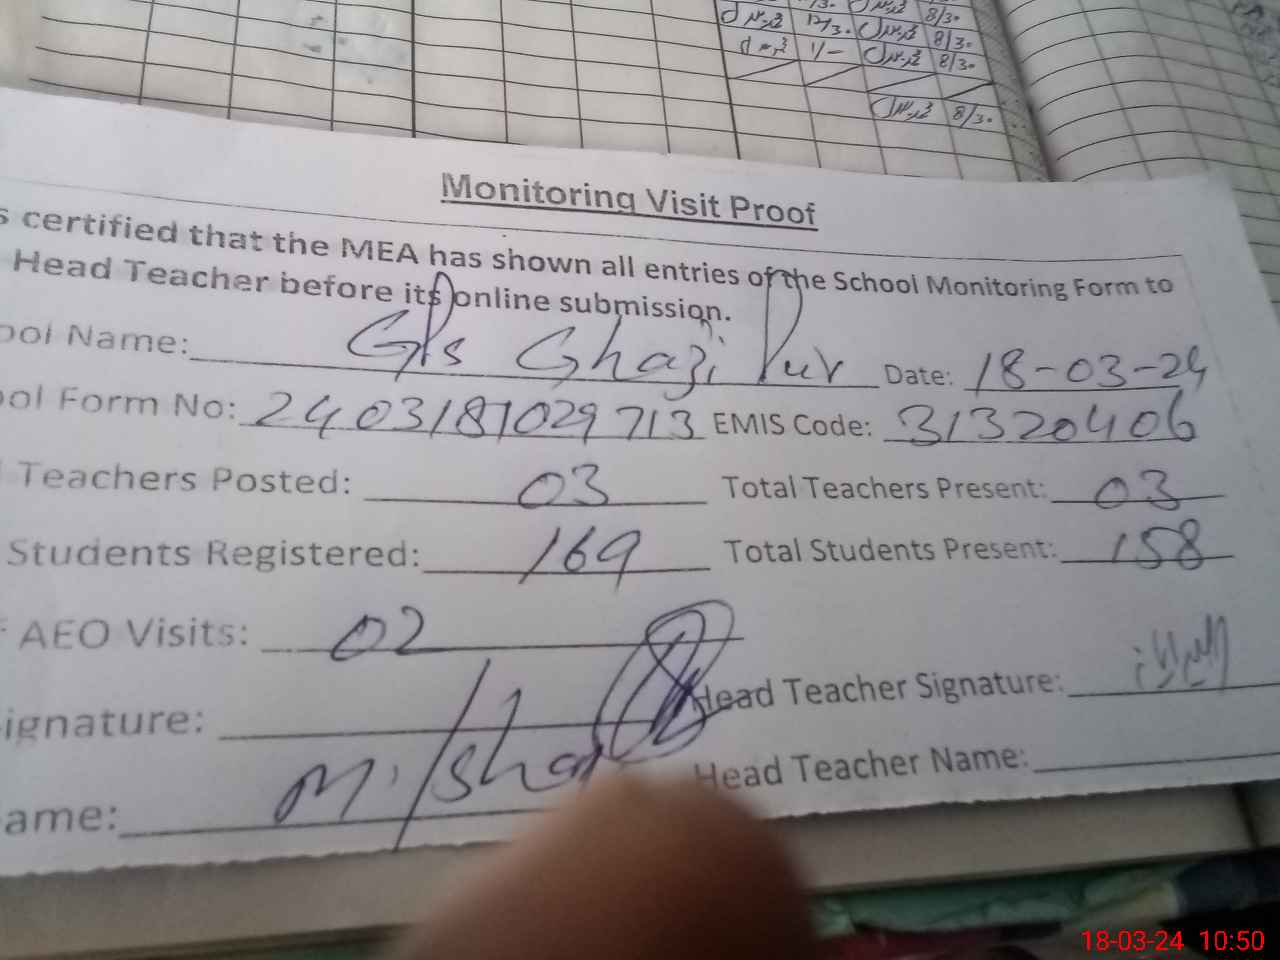 8/30
12/30 8/30
1/- 8/30
8/30
Monitoring Visit Proof
s certified that the MEA has shown all entries of the School Monitoring Form to
Head Teacher before its online submission.
ool Name: GPS Ghazi Pur Date: 18-03-24
ool Form No: 2403181029713 EMIS Code: 31320406
Teachers Posted: 03 Total Teachers Present: 03
Students Registered: 169 Total Students Present: 158
AEO Visits: 02
ignature: Head Teacher Signature:
ame: M. Head Teacher Name:
18-03-24 10:50